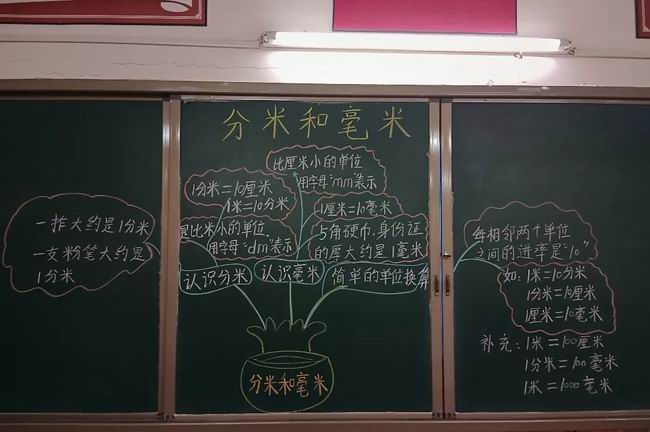 分米和毫米
一拃大约是1分米
一支粉笔大约是
1分米
1分米=10厘米
1米=10分米
是比米小的单位
用字母“dm”表示
认识分米
比厘米小的单位
用字母“mm”表示
1厘米=10毫米
1角硬币、身份证
的厚大约是1毫米
认识毫米
简单的单位换算
分米和毫米
每相邻两个单位
之间的进率是“10”
如:1米=10分米
1分米=10厘米
1厘米=10毫米
补充:1米=100厘米
1分米=100毫米
1米=1000毫米